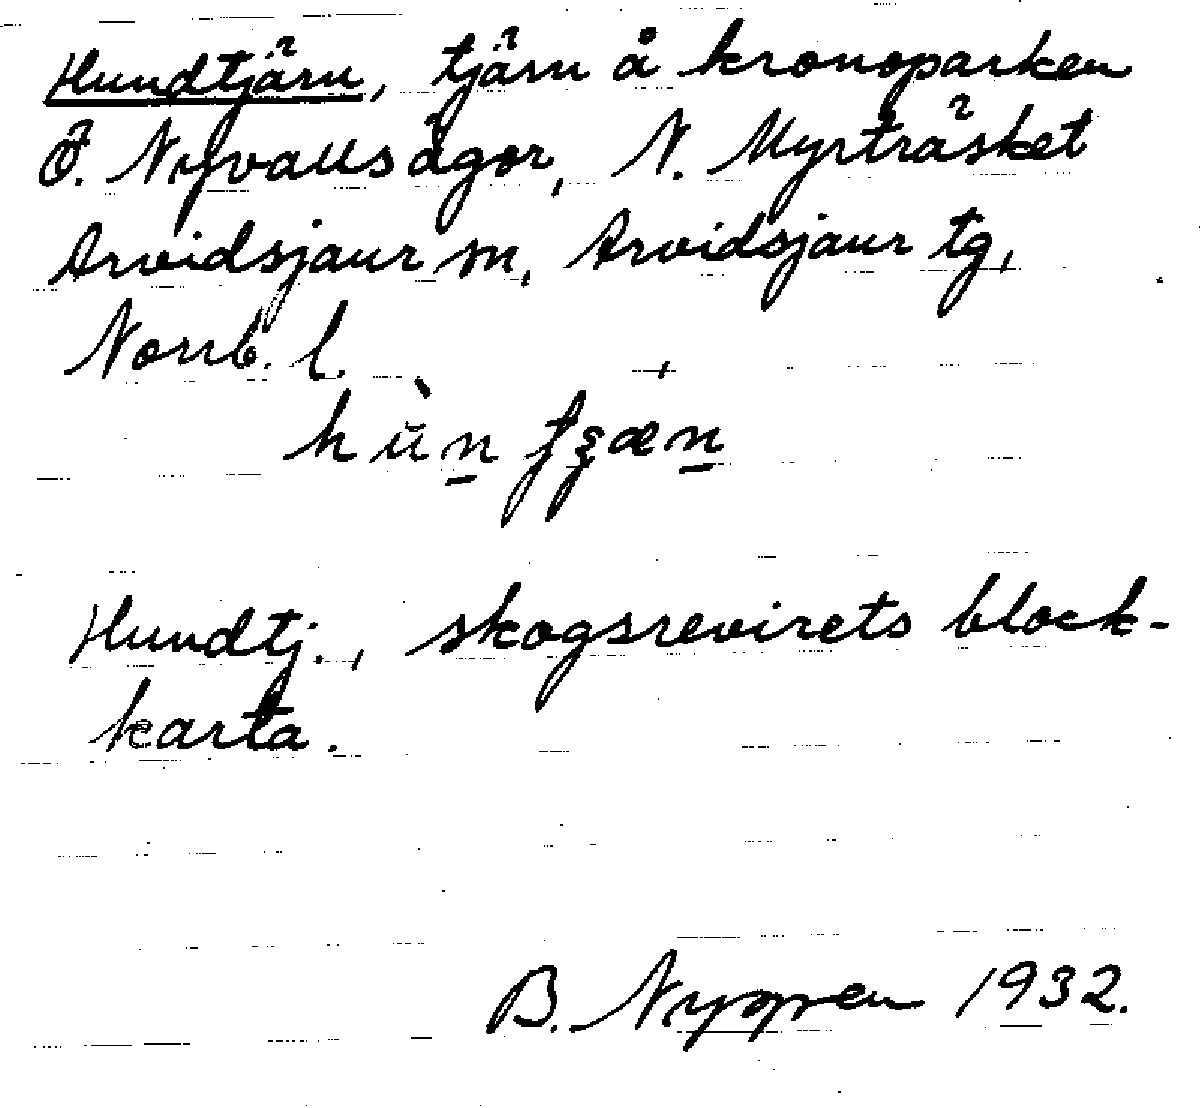 Hundtjärn, tjärn å kronoparken
Ö. Nyvallsågor, N. Myrträsket
Arvidsjaur sn, Arvidsjaur tg,
Norrb. l.
hùn
Hundtj., skogsrevirets block-
karta.
B. 1932.